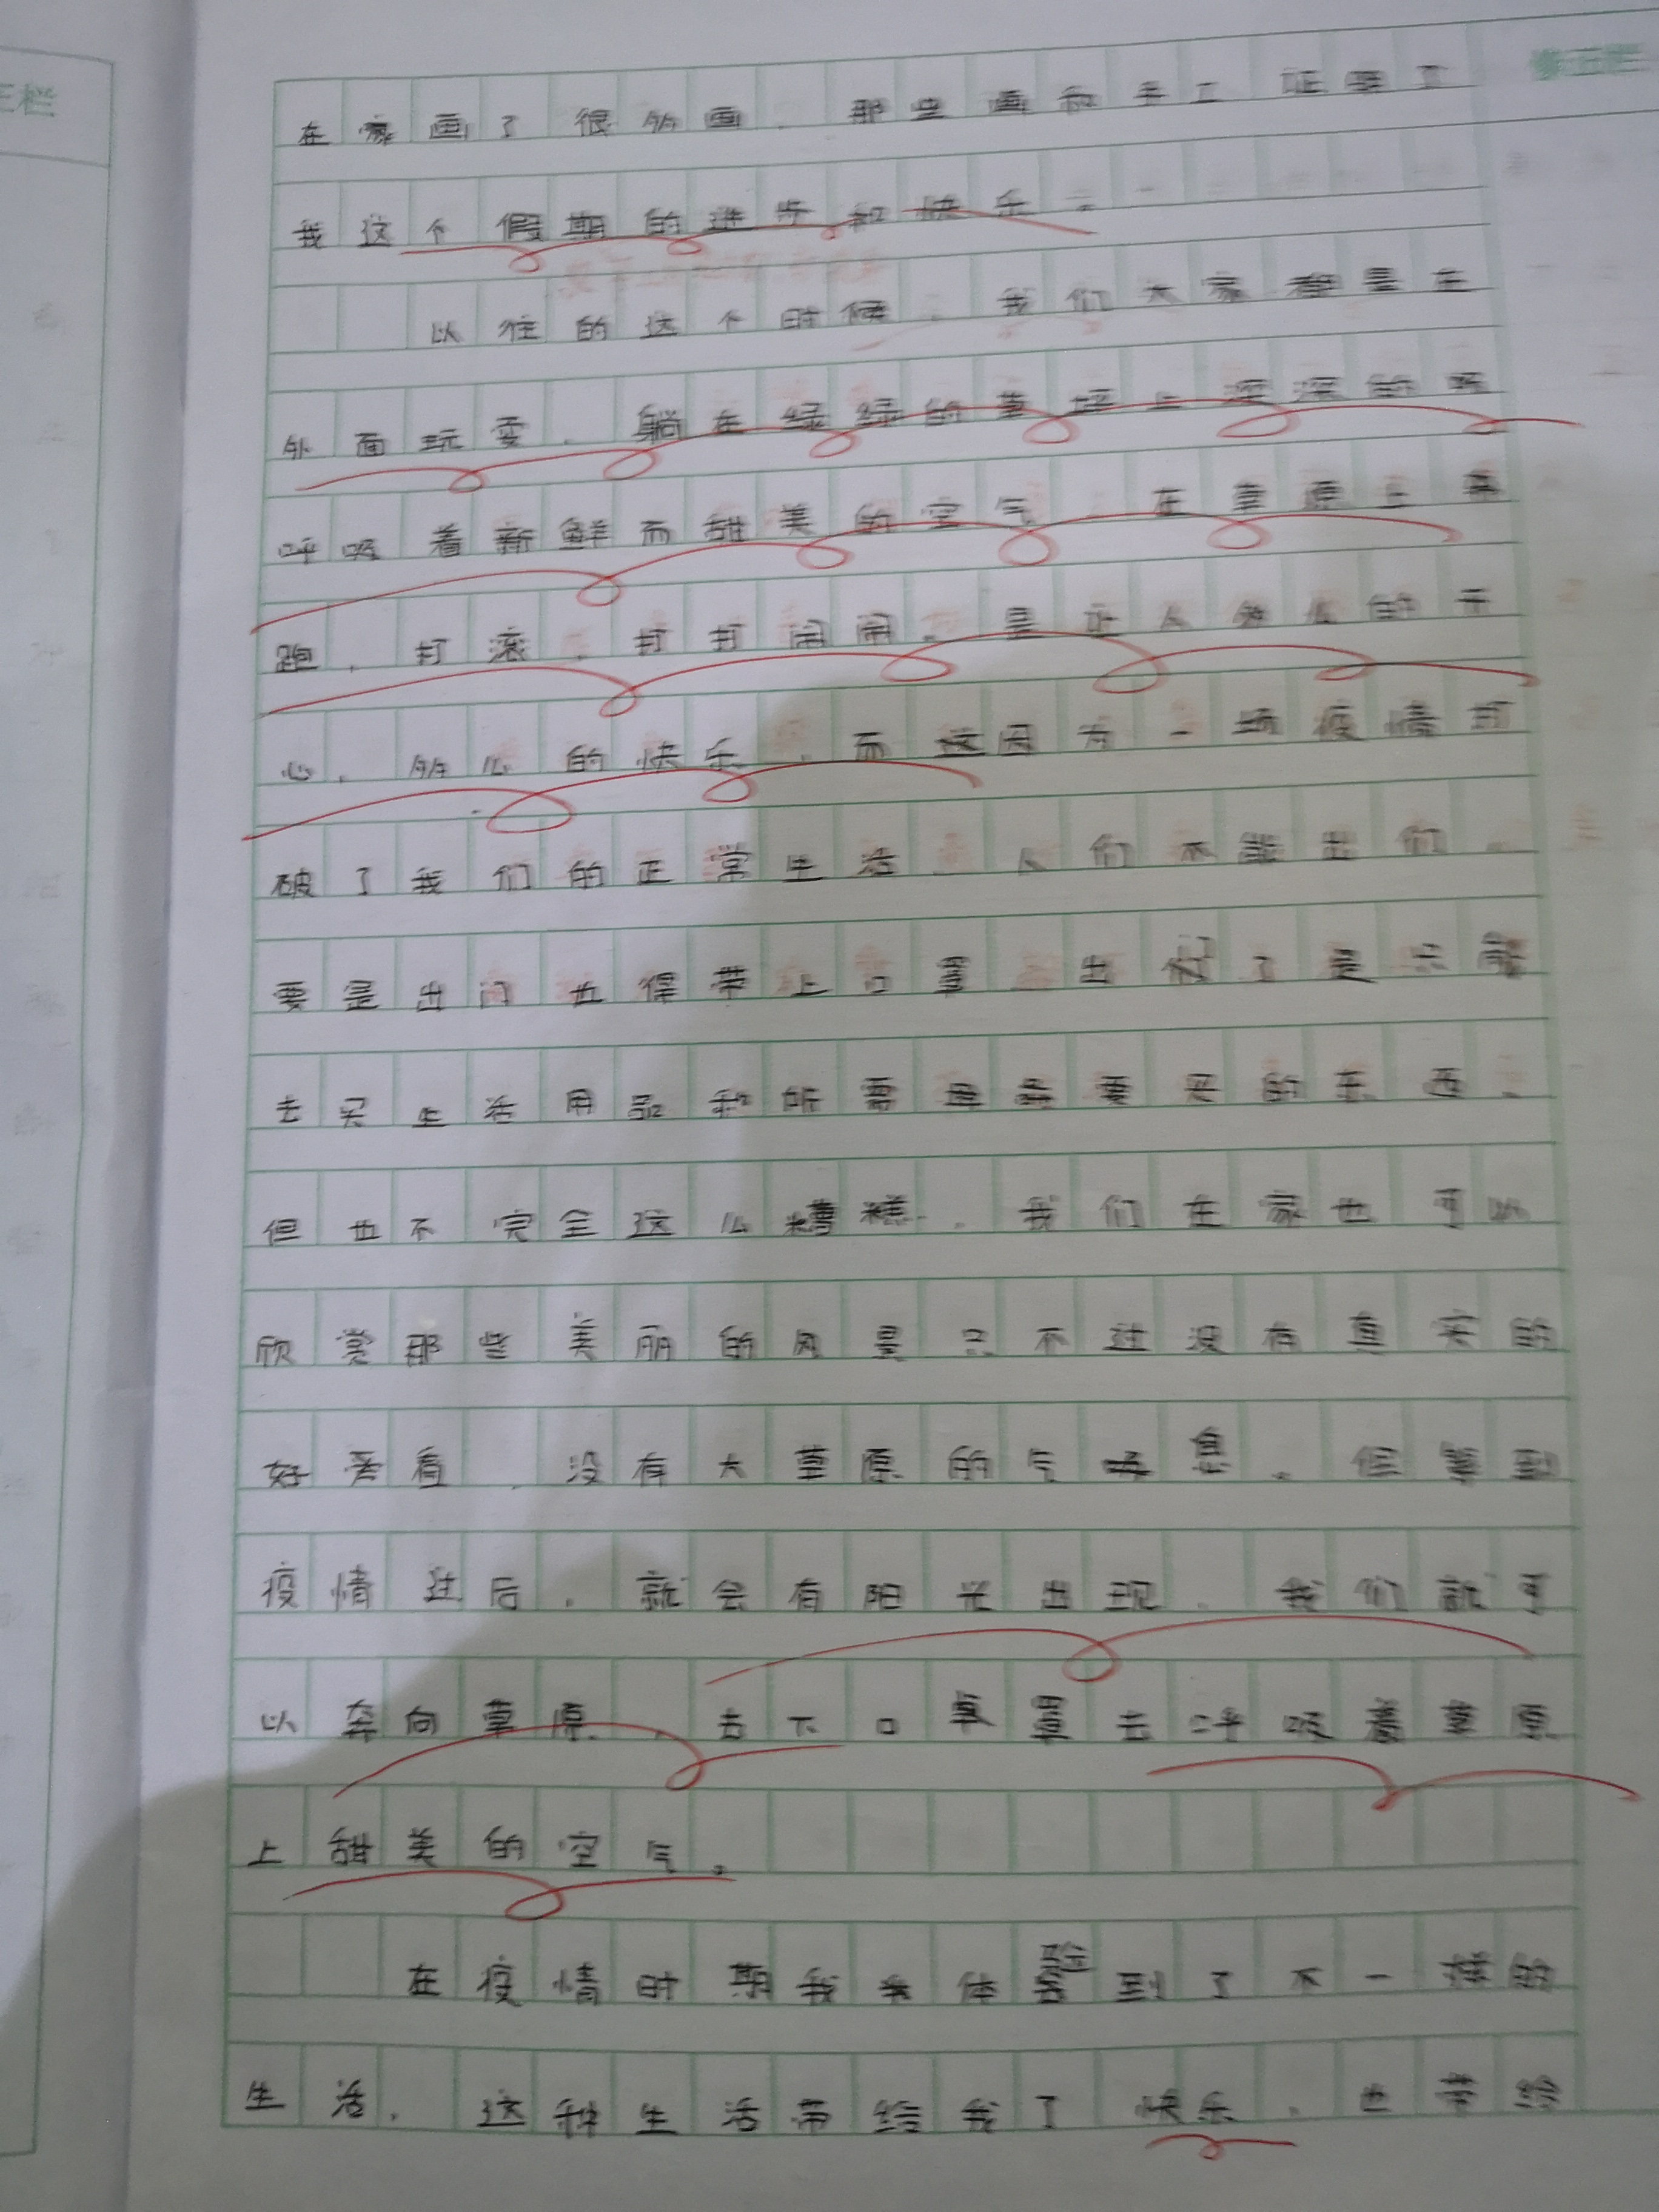 在家画了很多画，那些画和手工证明了
我这个假期的进步和快乐。
以往的这个时候，我们大家都是在
外面玩耍，躺在绿绿的草坪上深深的呼
呼吸着新鲜而甜美的空气，在草原上奔
跑，打滚，打打闹闹。是多么多么的开
心，多么的快乐，而这因为一场疫情打
破了我们的正常生活，人们不能出们，
要是出门也得带上口罩，出门了是只能
去买生活用品和所要要买的东西，
但也不完全这么糟糕，我们在家也可以
欣赏那些美丽的风景只不过没有真实的
好看，没有大草原的气息。但等到
疫情过后，就会有阳光出现，我们就可
以奔向草原，去下口罩去呼吸着草原
上甜美的空气。
在疫情时期我体验到了不一样的
生活，这种生活带给我了快乐，也带给
正栏
第五栏